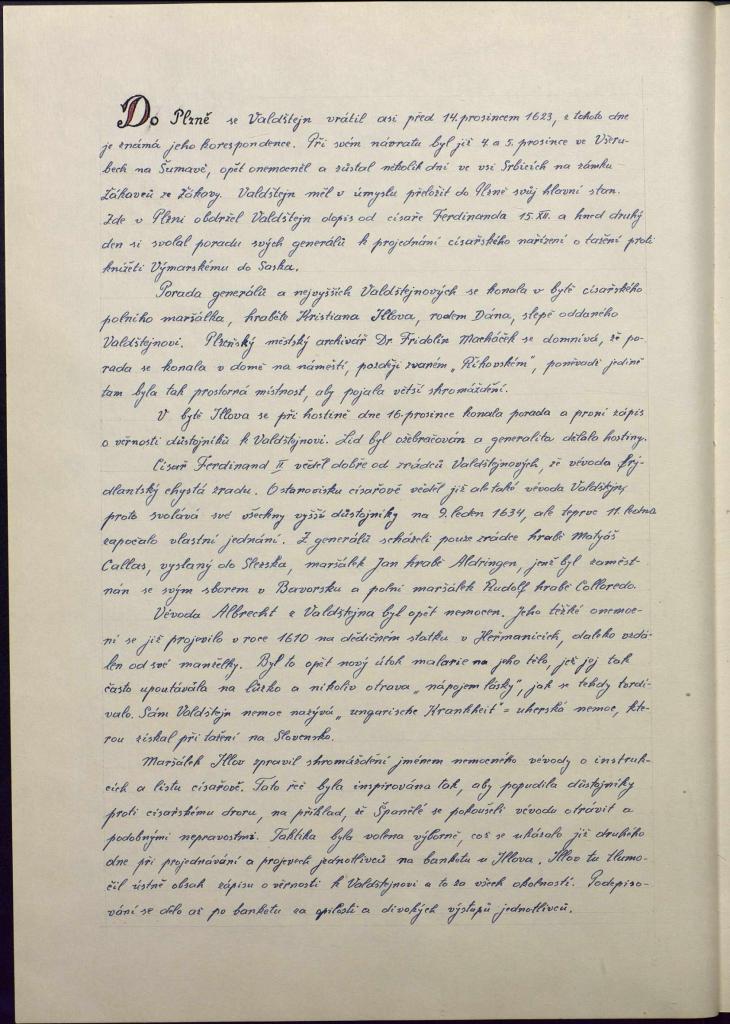 Do Plzně se Valdštejn vrátil asi před 14. prosincem 1623, z tohoto dne
je známá jeho korespondence. Při svém návratu byl již 4. a 5. prosince ve Všeru-
bech na Šumavě, opět onemocněl a zůstal několik dní ve vsi Srbicích na zámku
Žákavců ze Žákavy. Valdštejn měl v úmyslu přeložit do Plzně svůj hlavní stan.
Zde v Plzni obdržel Valdštejn dopis od císaře Ferdinanda 15. XII. a hned druhý
den si svolal poradu svých generálů k projednání císařského nařízení o tažení proti
knížeti Výmarskému do Saska.
Porada generálů a nejvyšších Valdštejnových se konala v bytě císařského
polního maršálka, hraběte Kristiana Illova, rodem Dána, slepě oddaného
Valdštejnovi. Plzeňský městský archivář Dr. Fridolín Macháček se domnívá, že po-
rada se konala v domě na náměstí, později zvaném „Říhovském", poněvadž jedině
tam byla tak prostorná místnost, aby pojala větší shromáždění.
V bytě Illova se při hostině dne 16. prosince konala porada a první zápis
o věrnosti důstojníků k Valdštejnovi. Lid byl ožebračován a generalita dělala hostiny.
Císař Ferdinand II věděl dobře od zrádců Valdštejnových, že vévoda frý-
dlantský chystá zradu. O stanovisku císařově věděl již ale také vévoda Valdštejn,
proto svolává své všechny vyšší důstojníky na 9. leden 1634, ale teprve 11. ledna
započalo vlastní jednání. Z generálů scházeli pouze zrádce hrabě Matyáš
Callas, vyslaný do Slezska, maršálek Jan hrabě Aldringen, jenž byl zaměst-
nán se svým sborem v Bavorsku a polní maršálek Rudolf hrabě Colloredo.
Vévoda Albrecht z Valdštejna byl opět nemocen. Jeho těžké onemoc-
ní se již projevilo v roce 1610 na dědičném statku v Heřmanicích, daleko vzdá-
len od své manželky. Byl to opět nový útok malarie na jeho tělo, jež jej tak
často upoutávála na lůžko a nikoliv otrava „nápojem lásky", jak se tehdy tvrdí-
valo. Sám Valdštejn nemoc nazývá „ungarische Krankheit" = uherská nemoc, kte-
rou získal při tažení na Slovensko.
Maršálek Illov zpravil shromáždění jménem nemocného vévody o instruk-
cích a listu císařově. Tato řeč byla inspirována tak, aby popudila důstojníky
proti císařskému dvoru, na příklad, že Španělé se pokoušeli vévodu otrávit a
podobnými nepravostmi. Taktika byla volena výborně, což se ukázalo již druhého
dne při projednávání a projevech jednotlivců na banketu u Illova. Illov tu tlumo-
čil ústně obsah zápisu o věrnosti k Valdštejnovi a to za všech okolností. Podepiso-
vání se dělo až po banketu za opilosti a divokých výstupů jednotlivců.